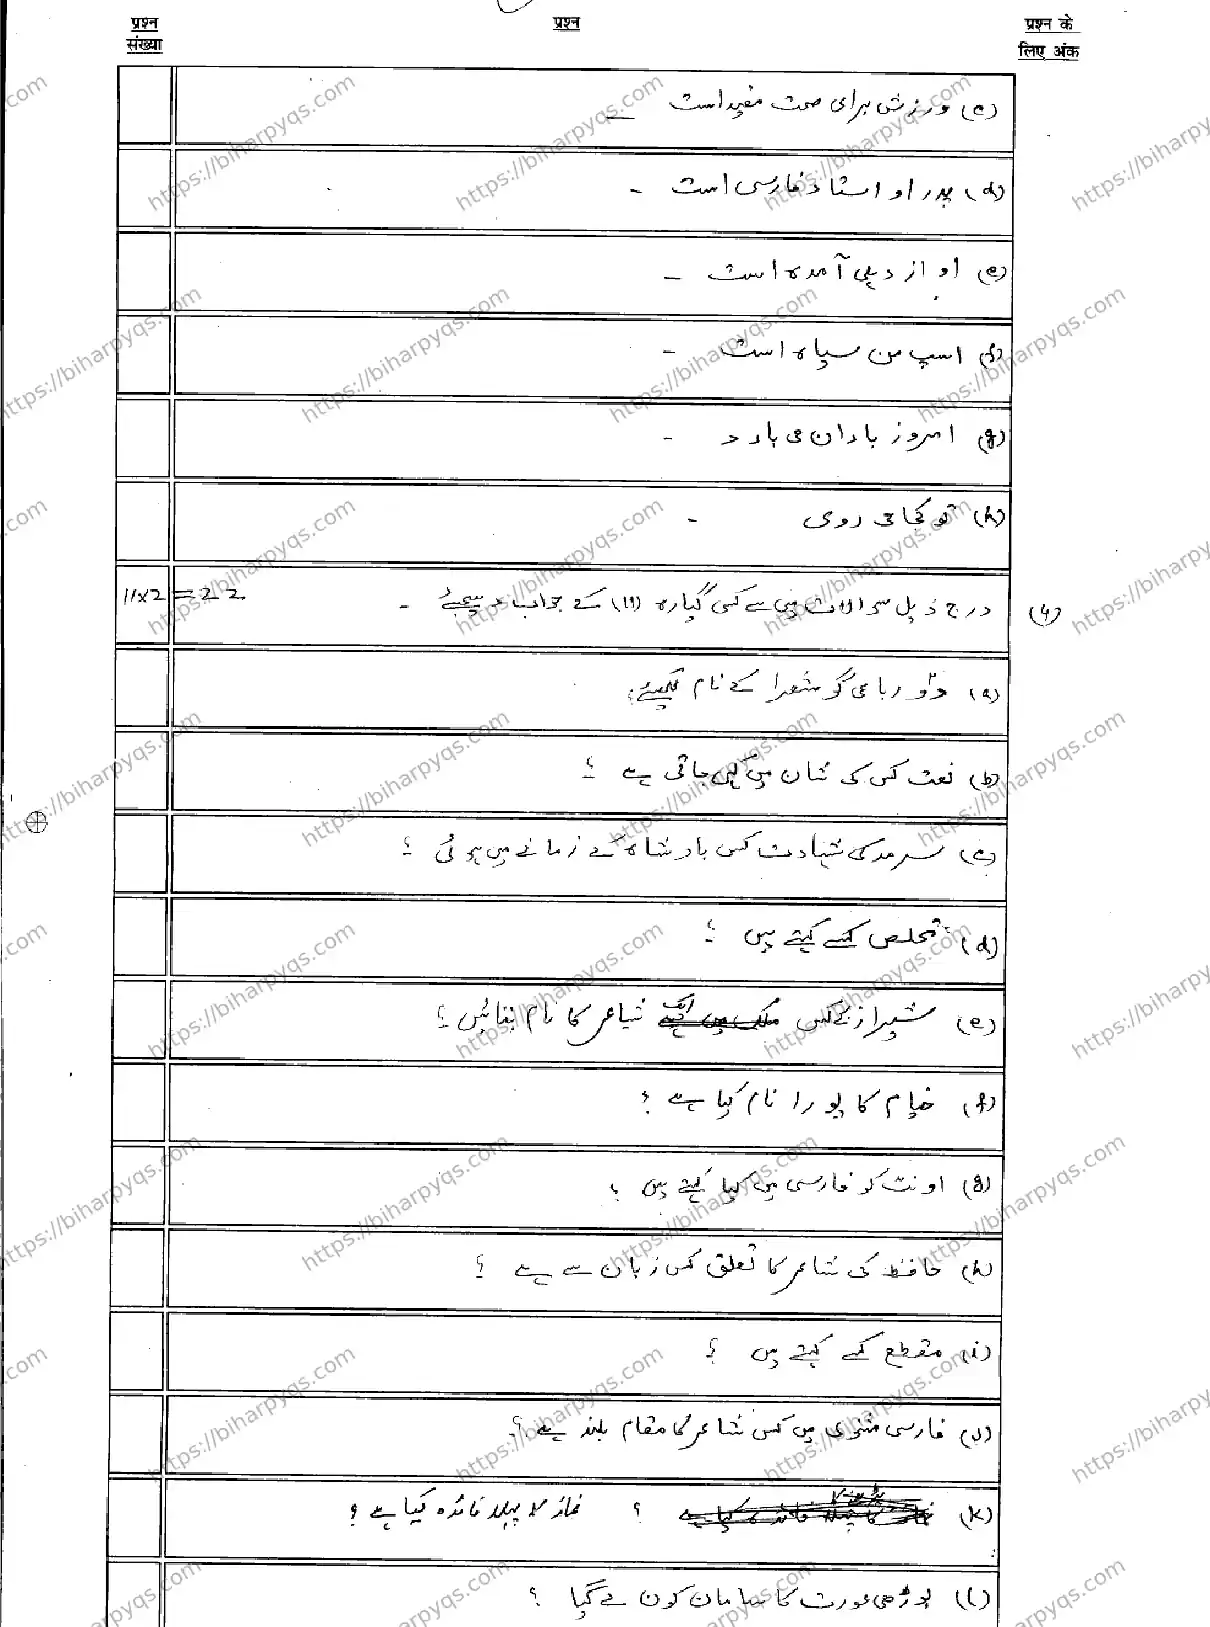 प्रश्न संख्या
प्रश्न
प्रश्न के लिए अंक
(c) ورزش برای صحت مفید است ـ
(d) پدر او استاد فارسی است ـ
(e) او از دہلی آمدہ است ـ
(f) اسپ من سیاہ است ـ
(g) امروز باران می بارد ـ
(h) تو کجا می روی ـ
(۴) درج ذیل سوالات میں سے کسی گیارہ (۱۱) کے جوابات دیجئے ـ 11x2=22
(a) دو رباعی گو شعرا کے نام لکھیئے ـ
(b) نعت کس کی شان میں کہی جاتی ہے ؟
(c) سرمد کی شہادت کس بادشاہ کے زمانے میں ہوئی ؟
(d) تخلص کسے کہتے ہیں ؟
(e) شیراز کے کس ایک شاعر کا نام بتائیں ؟
(f) خیام کا پورا نام کیا ہے ؟
(g) اونٹ کو فارسی میں کیا کہتے ہیں ؟
(h) حافظ کی شاعری کا تعلق کس زبان سے ہے ؟
(i) مقطع کسے کہتے ہیں ؟
(j) فارسی مثنوی میں کس شاعر کا مقام بلند ہے ؟
(k) ؟ نماز کا پہلا فائدہ کیا ہے ؟
(l) بوڑھی عورت کا سامان کون لے گیا ؟
https://biharpyqs.com